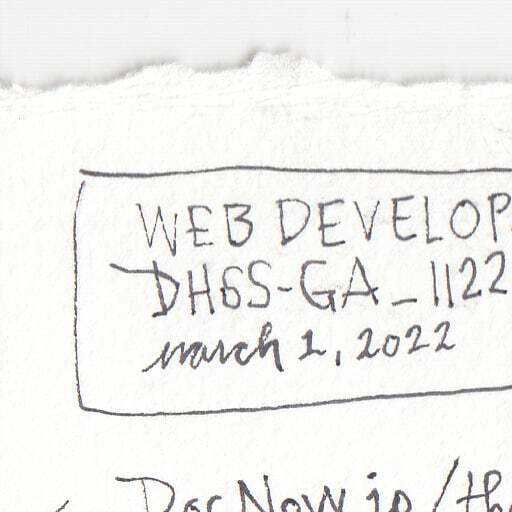 WEB DEVELOP
DHSS-GA_1122
march 1, 2022
DocNow.io/the